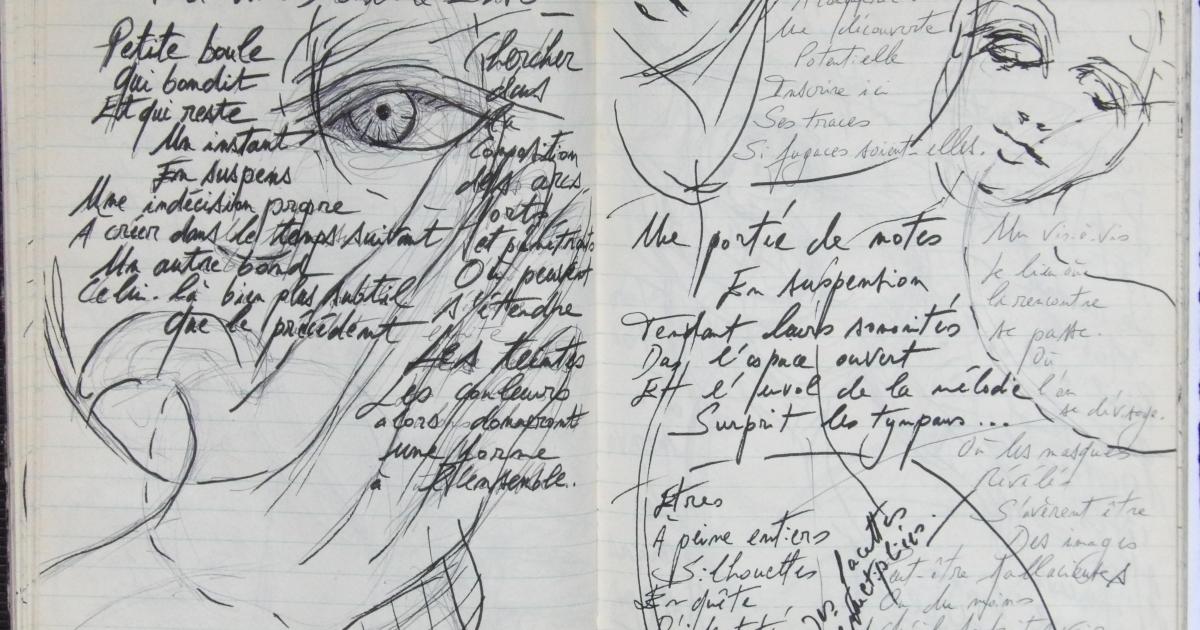 Petite boule
Qui bondit
Et qui reste
Un instant
En suspens
Une indécision propre
A créer dans le temps suivant
Un autre bond
Celui-là bien plus subtil
Que le précédent
Chercher
dans
la
Composition
des arcs
forts
et pénétrants
Où peuvent
s'étendre
Les teintes
Les couleurs
alors donneront
une forme
à l'ensemble.
Une découverte
Potentielle
Inscrire ici
Ses traces
Si fugaces soient-elles.
Une portée de notes
En suspention
Tendant leurs sonorités
Das l'espace ouvert
Et l'envol de la mélodie
Surprit les tympans ...
Etres
À peine entiers
Silhouettes
En quête
facettes
multipliées.
Un vis-à-vis
Le lieu où
la rencontre
se passe.
Où
l'on
se dévisage.
Où les masques
Révélés
S'avèrent être
Des images
Peut-être fallacieuses
Ou du moins